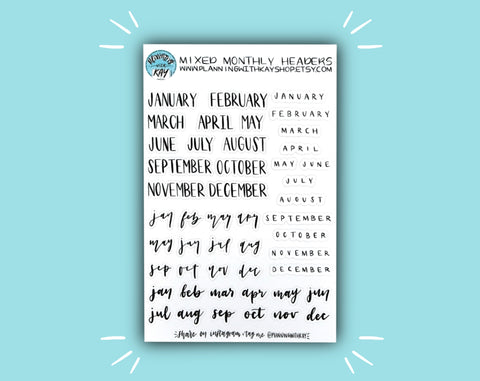 PLANNING
WITH
KAY
MIXED MONTHLY HEADERS
WWW.PLANNINGWITHKAYSHOP.ETSY.COM
JANUARY FEBRUARY
MARCH APRIL MAY
JUNE JULY AUGUST
SEPTEMBER OCTOBER
NOVEMBER DECEMBER
JANUARY
FEBRUARY
MARCH
APRIL
MAY JUNE
JULY
AUGUST
SEPTEMBER
OCTOBER
NOVEMBER
DECEMBER
jan feb mar apr
may jun jul aug
sep oct nov dec
jan feb mar apr may jun
jul aug sep oct nov dec
share on instagram + tag me @PLANNINGWITHKAY